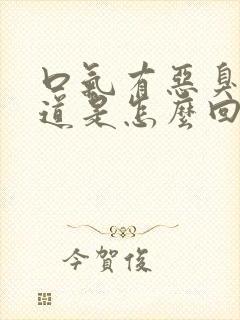 口氣有惡臭
道是怎麼回
今賀俊